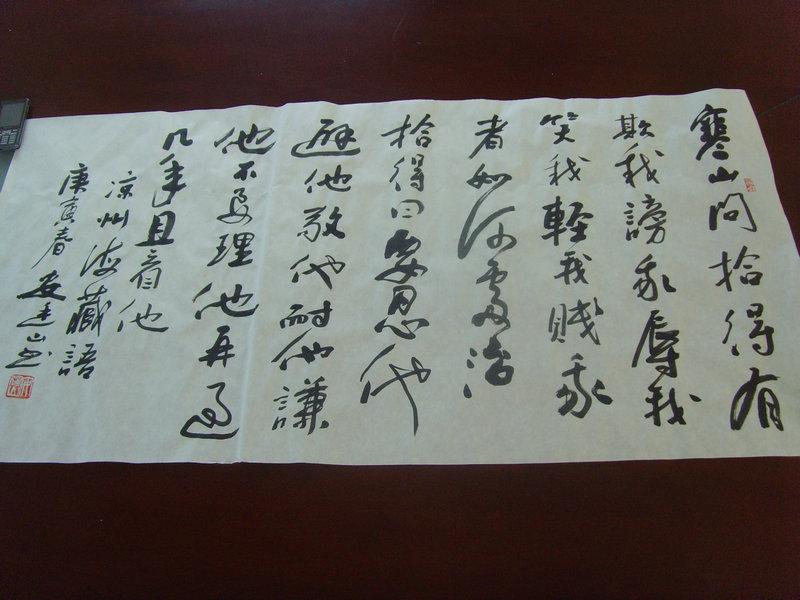 寒山问拾得有
欺我謗我辱我
笑我輕我賤我
者如何處治
拾得曰要忍他
避他敬他耐他謙
他不要理他再過
几年且看他
凉州海藏語
庚寅春
山书